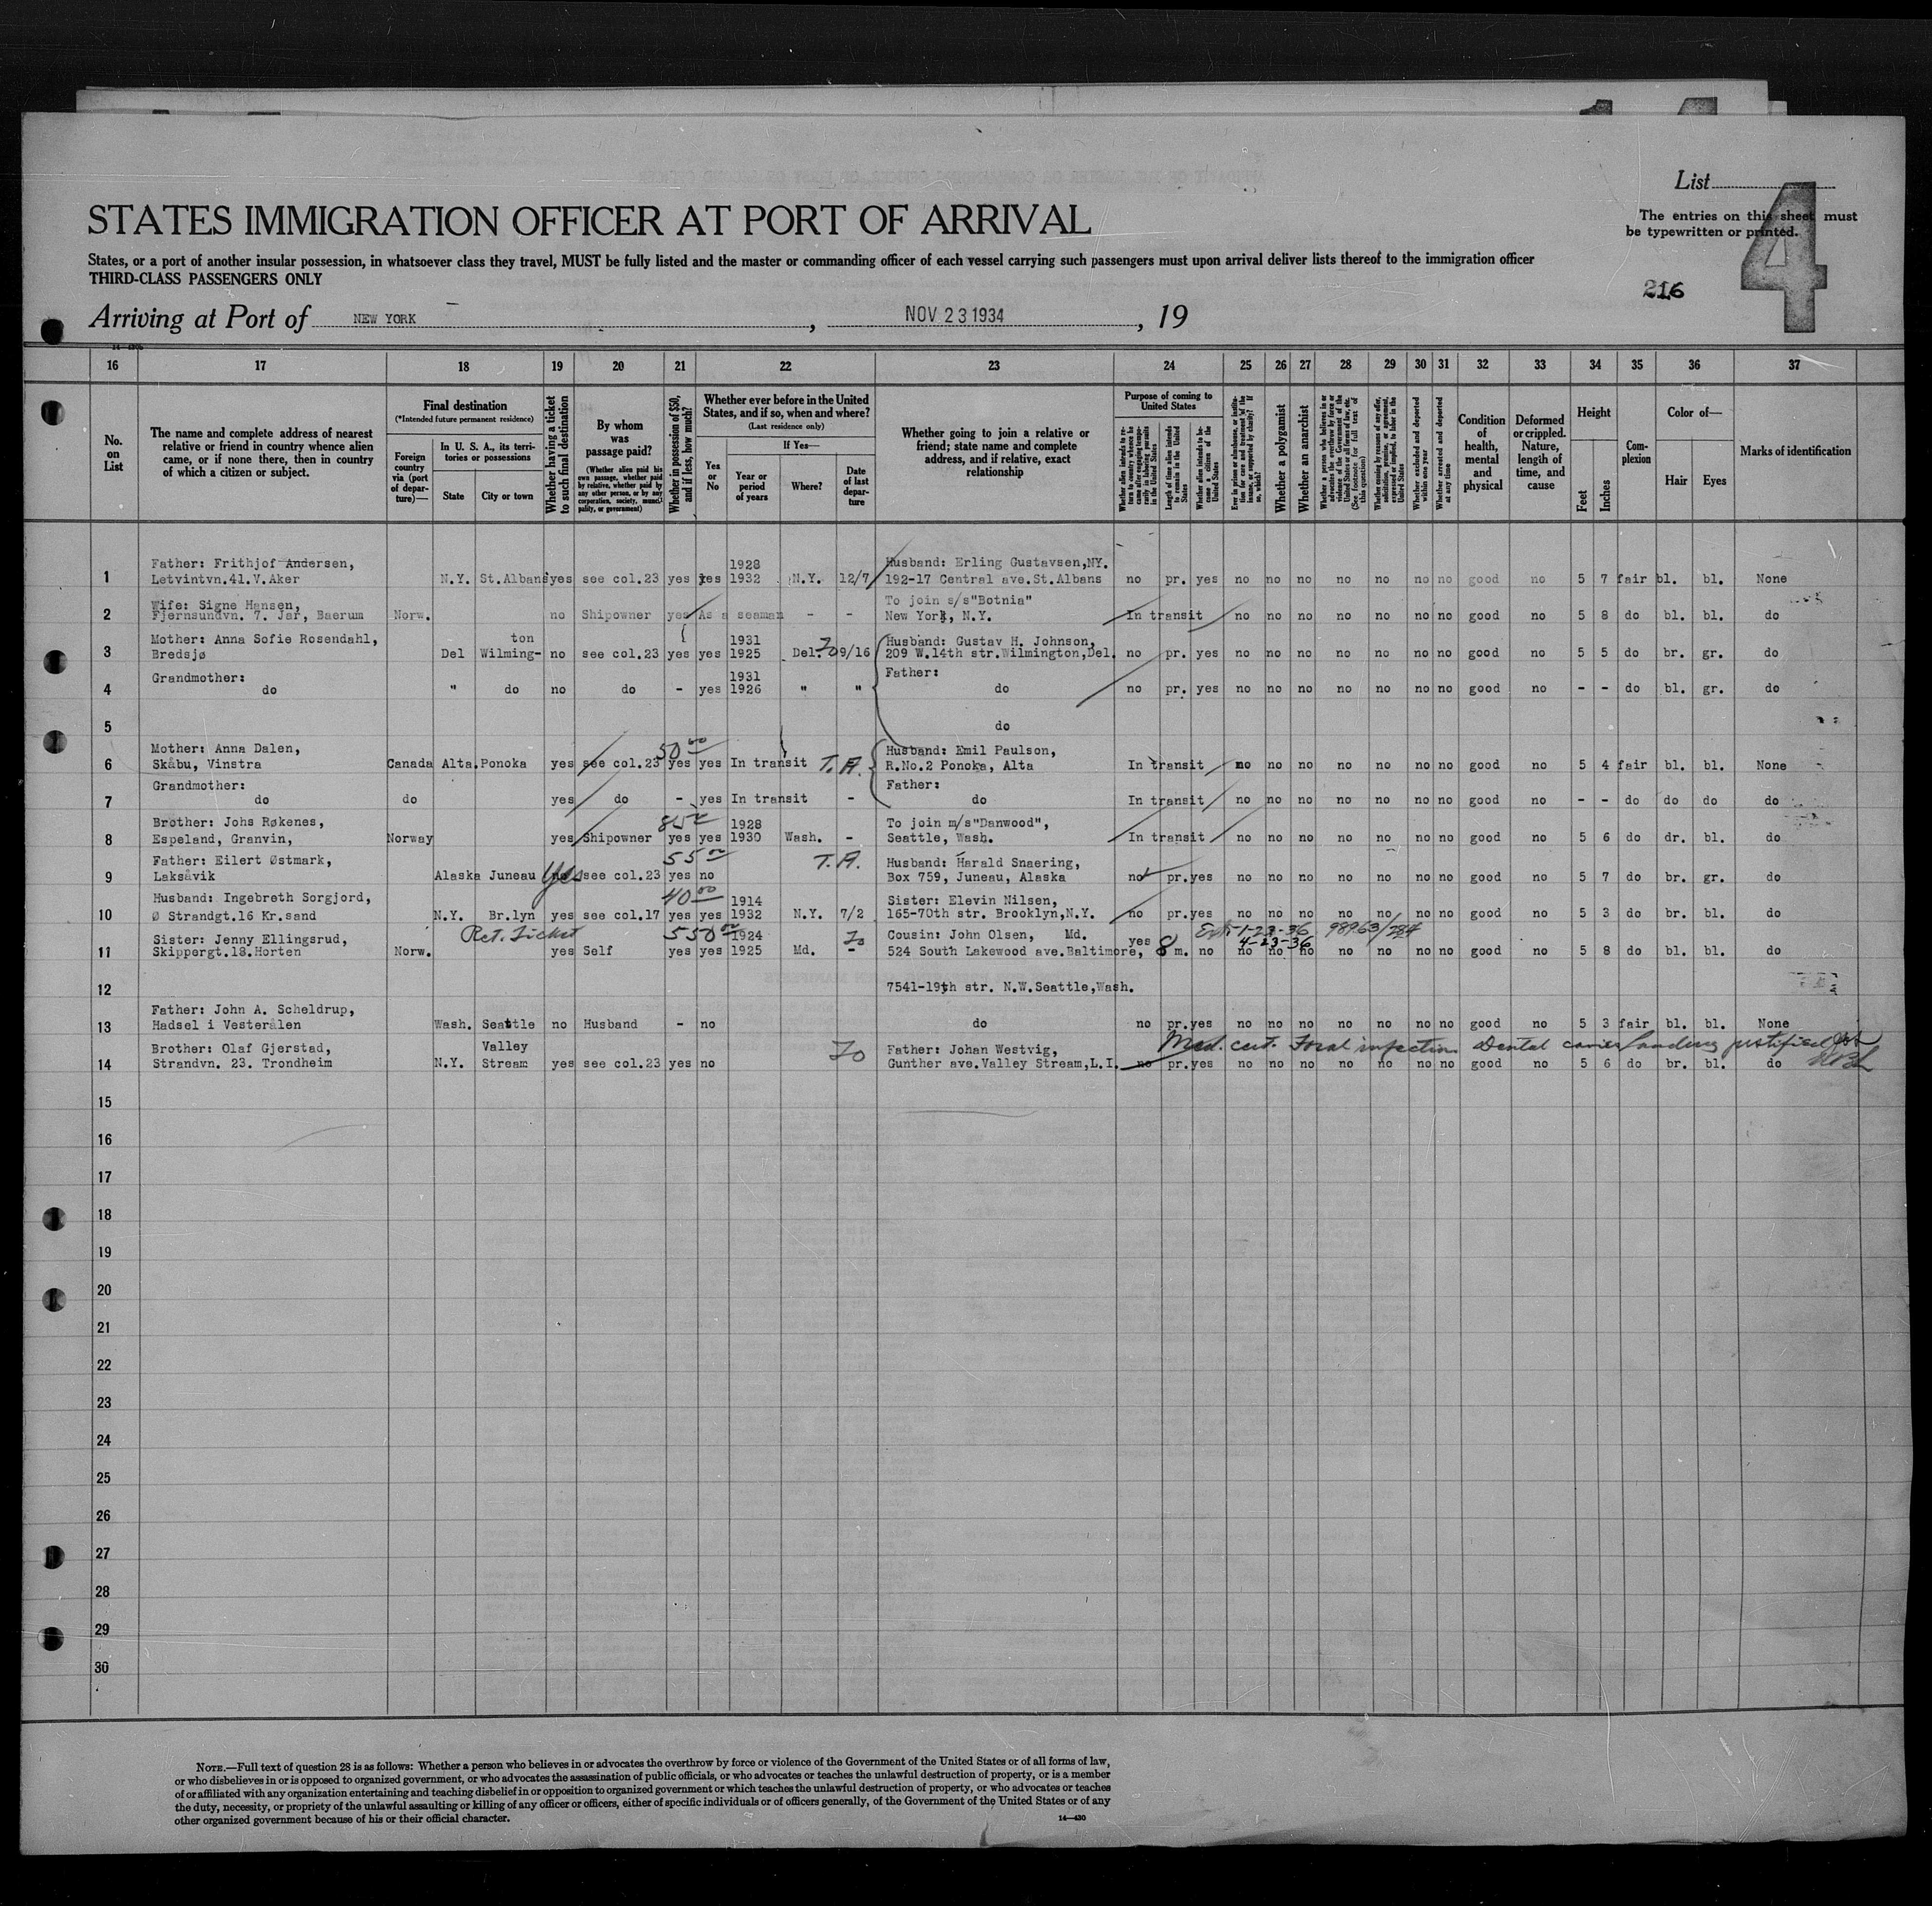 List
The entries on this sheet must
be typewritten or printed.
4
216
STATES IMMIGRATION OFFICER AT PORT OF ARRIVAL
States, or a port of another insular possession, in whatsoever class they travel, MUST be fully listed and the master or commanding officer of each vessel carrying such passengers must upon arrival deliver lists thereof to the immigration officer
THIRD-CLASS PASSENGERS ONLY
Arriving at Port of NEW YORK, NOV 23 1934, 19
16 17 18 19 20 21 22 23 24 25 26 27 28 29 30 31 32 33 34 35 36 37
No. on List
The name and complete address of nearest relative or friend in country whence alien came, or if none there, then in country of which a citizen or subject.
Final destination
(*Intended future permanent residence)
Foreign country via (port of departure)—
In U. S. A., its territories or possessions
State
City or town
Whether having a ticket to such final destination
By whom was passage paid?
(Whether alien paid his own passage, whether paid by relative, whether paid by any other person, or by any corporation, society, municipality, or government)
Whether in possession of $50, and if less, how much?
Whether ever before in the United States, and if so, when and where?
(Last residence only)
Yes or No
If Yes—
Year or period of years
Where?
Date of last departure
Whether going to join a relative or friend; state name and complete address, and if relative, exact relationship
Purpose of coming to United States
Whether alien intends to return to country whence he came after engaging temporarily in laboring pursuits in the United States
Length of time alien intends to remain in the United States
Whether alien intends to become a citizen of the United States
Ever in prison or almshouse, or institution for care and treatment of the insane, or supported by charity? If so, which?
Whether a polygamist
Whether an anarchist
Whether a person who believes in or advocates the overthrow by force or violence of the Government of the United States or all forms of law, etc. (See footnote for full text of this question)
Whether coming by reasons of any offer, solicitation, promise, or agreement, expressed or implied, to labor in the United States
Whether excluded and deported within one year
Whether arrested and deported at any time
Condition of health, mental and physical
Deformed or crippled. Nature, length of time, and cause
Height
Feet
Inches
Complexion
Color of—
Hair
Eyes
Marks of identification
Father: Frithjof Andersen, 1928 Husband: Erling Gustavsen,NY.
1 Letvintvn.41.V.Aker N.Y. St.Albans yes see col.23 yes yes 1932 N.Y. 12/7 192-17 Central ave.St.Albans no pr. yes no no no no no no no good no 5 7 fair bl. bl. None
Wife: Signe Hansen, To join s/s"Botnia"
2 Fjernsundvn. 7. Jar, Baerum Norw. no Shipowner yes As a seaman - - New York, N.Y. In transit no no no no no no no good no 5 8 do bl. bl. do
Mother: Anna Sofie Rosendahl, ton 1931 Husband: Gustav H. Johnson,
3 Bredsjø Del Wilming- no see col.23 yes yes 1925 Del. 9/16 209 W.14th str.Wilmington,Del. no pr. yes no no no no no no no good no 5 5 do br. gr. do
Grandmother: 1931 Father:
4 do " do no do - yes 1926 " " do no pr. yes no no no no no no no good no - - do bl. gr. do
5 do
Mother: Anna Dalen, 50 00 Husband: Emil Paulson,
6 Skåbu, Vinstra Canada Alta. Ponoka yes see col.23 yes yes In transit T.A. R.No.2 Ponoka, Alta In transit no no no no no no no good no 5 4 fair bl. bl. None
Grandmother: Father:
7 do do yes do - yes In transit - do In transit no no no no no no no good no - - do do do do
Brother: Johs Røkenes, 85 1928 To join m/s"Danwood",
8 Espeland, Granvin, Norway yes Shipowner yes yes 1930 Wash. - Seattle, Wash. In transit no no no no no no no good no 5 6 do dr. bl. do
Father: Eilert Østmark, 55 00 T.A. Husband: Harald Snaering,
9 Laksåvik Alaska Juneau no Yes see col.23 yes no Box 759, Juneau, Alaska no pr. yes no no no no no no no good no 5 7 do br. gr. do
Husband: Ingebreth Sorgjord, 40 00 1914 Sister: Elevin Nilsen,
10 Ø Strandgt.16 Kr.sand N.Y. Br.lyn yes see col.17 yes yes 1932 N.Y. 7/2 165-70th str. Brooklyn,N.Y. no pr. yes no no no no no no no good no 5 3 do br. bl. do
Ret. Ticket 550 00 Ext. 1-23-36 98963/784
Sister: Jenny Ellingsrud, 1924 Cousin: John Olsen, Md. 4-23-36
11 Skippergt.18.Horten Norw. yes Self yes yes 1925 Md. - 524 South Lakewood ave.Baltimore, yes 8 m. no no no no no no no no good no 5 8 do bl. bl. do
12 7541-19th str. N.W.Seattle,Wash.
Father: John A. Scheldrup,
13 Hadsel i Vesterålen Wash. Seattle no Husband - no do no pr. yes no no no no no no no good no 5 3 fair bl. bl. None
Med. cert. Focal infection Dental caries landing justified
Brother: Olaf Gjerstad, Valley Father: Johan Westvig,
14 Strandvn. 23. Trondheim N.Y. Stream yes see col.23 yes no Gunther ave.Valley Stream,L.I. no pr. yes no no no no no no no good no 5 6 do br. bl. do
15
16
17
18
19
20
21
22
23
24
25
26
27
28
29
30
NOTE.—Full text of question 28 is as follows: Whether a person who believes in or advocates the overthrow by force or violence of the Government of the United States or of all forms of law,
or who disbelieves in or is opposed to organized government, or who advocates the assassination of public officials, or who advocates or teaches the unlawful destruction of property, or is a member
of or affiliated with any organization entertaining and teaching disbelief in or opposition to organized government or which teaches the unlawful destruction of property, or who advocates or teaches
the duty, necessity, or propriety of the unlawful assaulting or killing of any officer or officers, either of specific individuals or of officers generally, of the Government of the United States or of any
other organized government because of his or their official character.
14—430